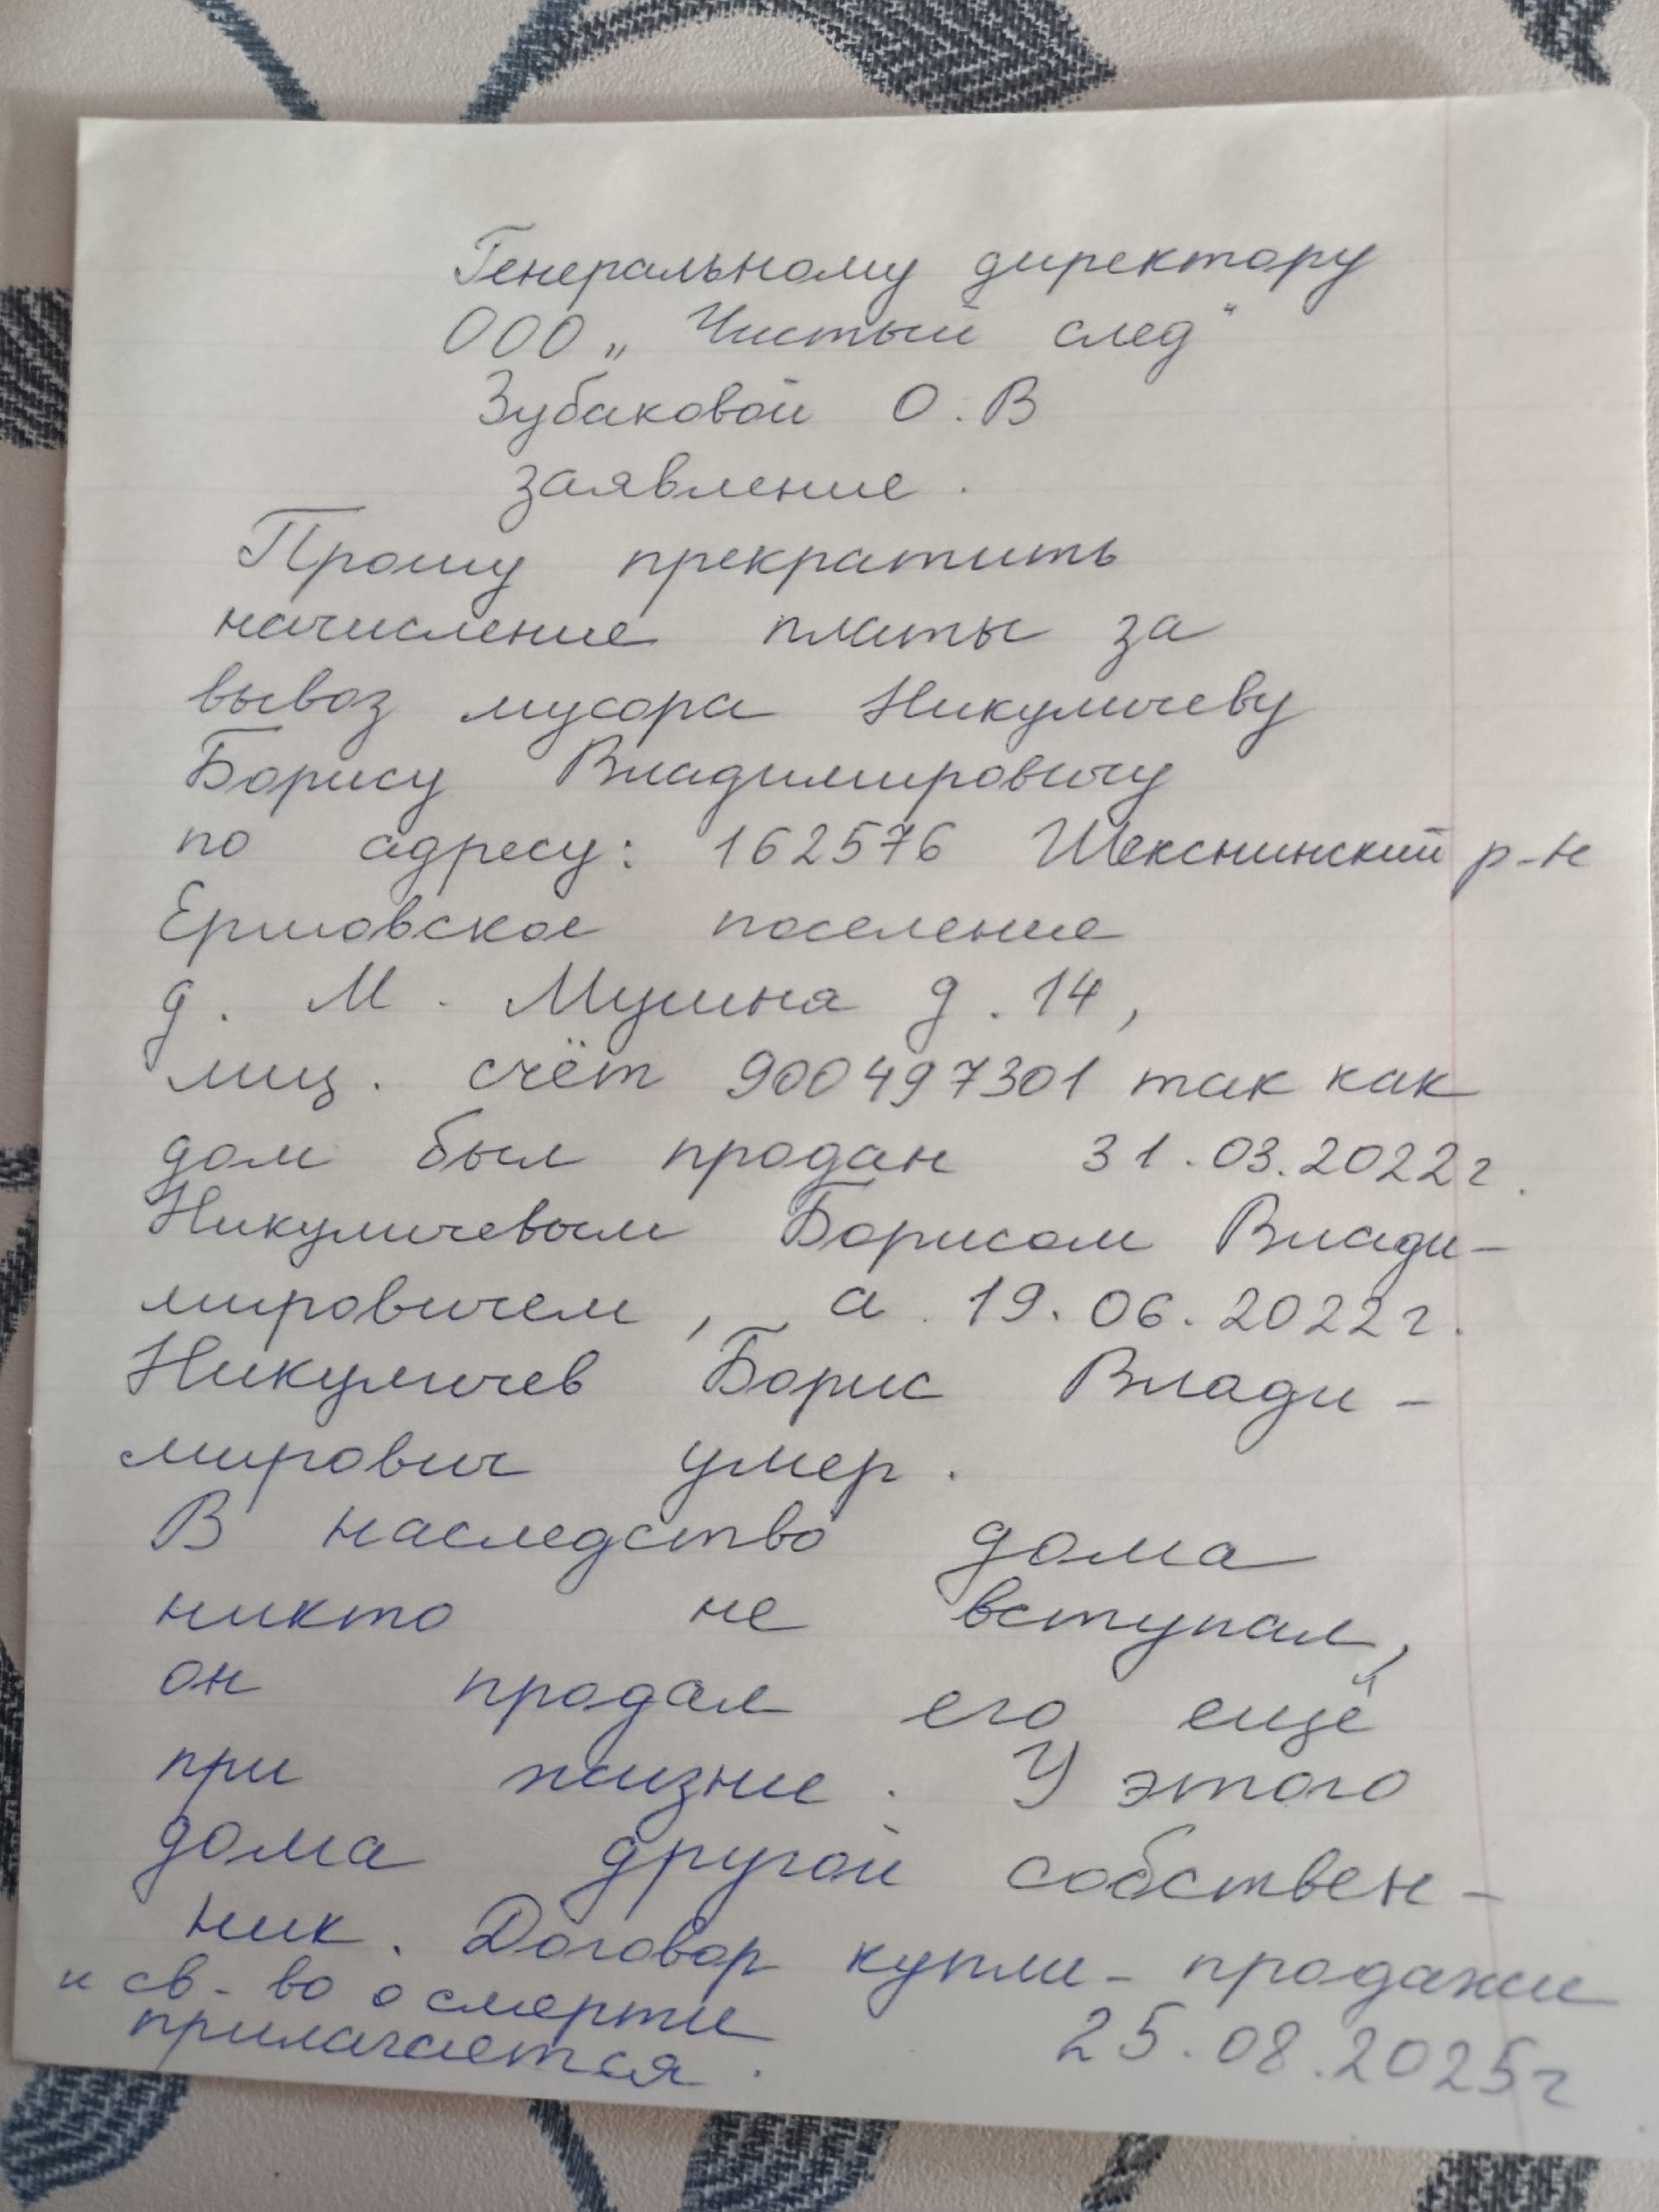 Генеральному директору
ООО „Чистый след"
Зубаковой О.В
заявление.
Прошу прекратить
начисление платы за
вывоз мусора Никуличеву
Борису Владимировичу
по адресу: 162576 Шекснинский р-н
Ершовское поселение
д. М. Мушна д. 14,
лиц. счёт 900497301 так как
дом был продан 31.03.2022г.
Никуличевым Борисом Влади-
мировичем, а 19.06.2022г.
Никуличев Борис Влади-
мирович умер.
В наследство дома
никто не вступал,
он продал его ещё
при жизни. У этого
дома другой собствен-
ник. Договор купли-продажи
и св-во о смерти
прилагается.
25.08.2025г